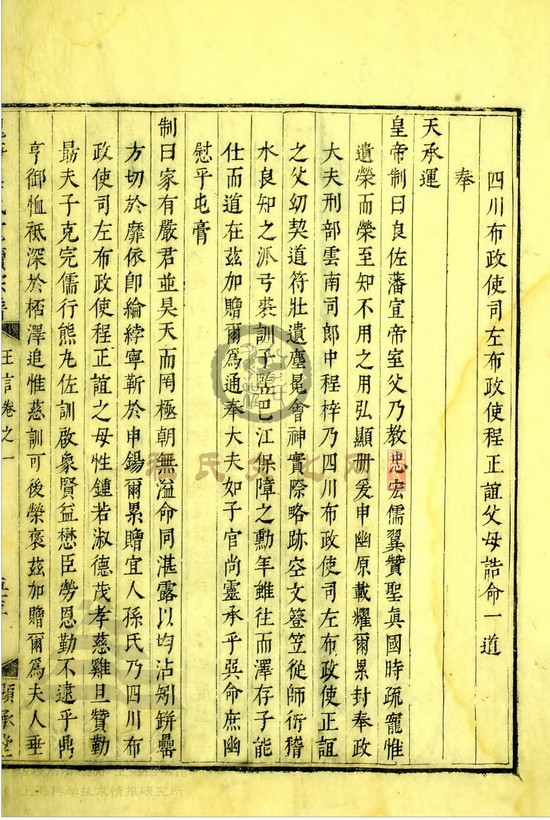 四川布政使司左布政使程正誼父母誥命一道
奉
天承運
皇帝制曰良佐藩宣帝室父乃教忠宏儒翼贊聖真國時疏寵惟
遺榮而榮至知不用之用弘顯冊爰申幽原載耀爾累封奉政
大夫刑部雲南司郎中程梓乃四川布政使司左布政使正誼
之父幼契道符壯遺塵冕會神實際略跡空文簦笠從師衍稽
水良知之派弓裘訓子監巴江保障之勳年雖往而澤存子能
仕而道在茲加贈爾為通奉大夫如子官尚靈承乎巽命庶幽
慰乎屯膏
制曰家有嚴君並昊天而罔極朝無溢命同湛露以均沾矧缾罍
方切於靡依即綸綍寧靳於申錫爾累贈宜人孫氏乃四川布
政使司左布政使程正誼之母性鍾若淑德茂孝慈雞旦贊勤
勗夫子克完儒行熊丸佐訓啟象賢益懋臣勞恩勤不逮乎鼎
亨御恤祗深於桮澤追惟慈訓可後榮褒茲加贈爾為夫人垂
王言卷之一
顯承堂
上海科学技术情报研究所